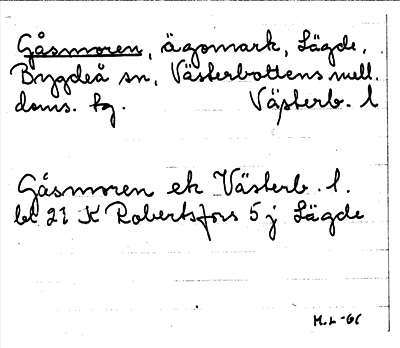 Gåsmoren, ägomark, Lägde,
Bygdeå sn, Västerbottens mell.
doms. tg. Västerb. l
Gåsmoren ek Västerb. l.
bl 21 K Robertsfors 5 j Lägde
M.L-61